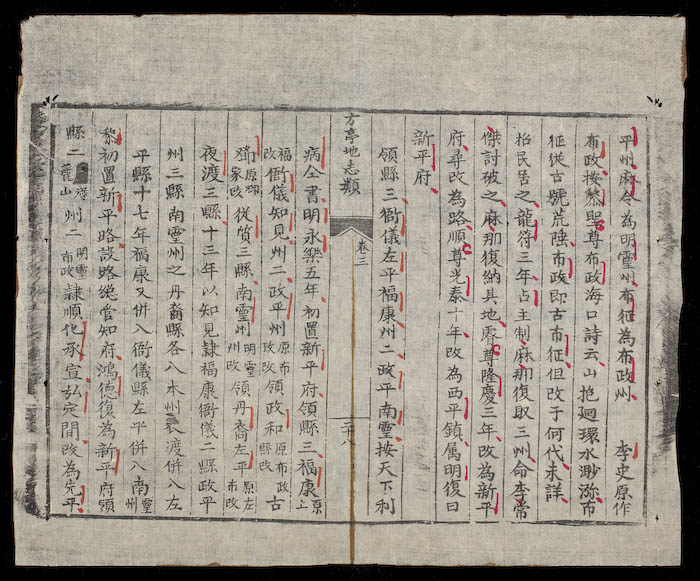 平州麻令為明霊州布征為布政州 李史原作
布政按黎聖尊布政海口詩云山抱廻環水渺瀰布
征從古號荒陬布政即古布征但改于何代未詳
招民居之龍符三年占主制麻那復取三州命李常
傑討破之麻那復納其地尊隆慶三年改為新平
府尋改為路順尊光泰十年改為西平鎮属明復曰
新平府
領縣三衙儀左平福康州二政平南霊按天下利
方亭地志類
卷三
二十八
病全書明永樂五年初置新平府領縣三福康
福改衙儀知見州二政平州原布政改領政和原布政縣改古
鄧原鄧家改從質三縣南霊州明霊州改領丹裔左平原左布政
夜渡三縣十三年以知見隸福康衙儀二縣政平
州三縣南霊州之丹裔縣各入本州夜渡併入左
平縣十七年福康又併入衙儀縣左平併入南霊州
黎初置新平路設略總管知府鴻德復為新平府領
縣二麗山州二明霊布政隸順化承宣弘定間改為先平